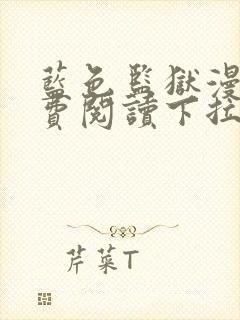 藍色監獄漫
費閱讀下拉
芹菜T